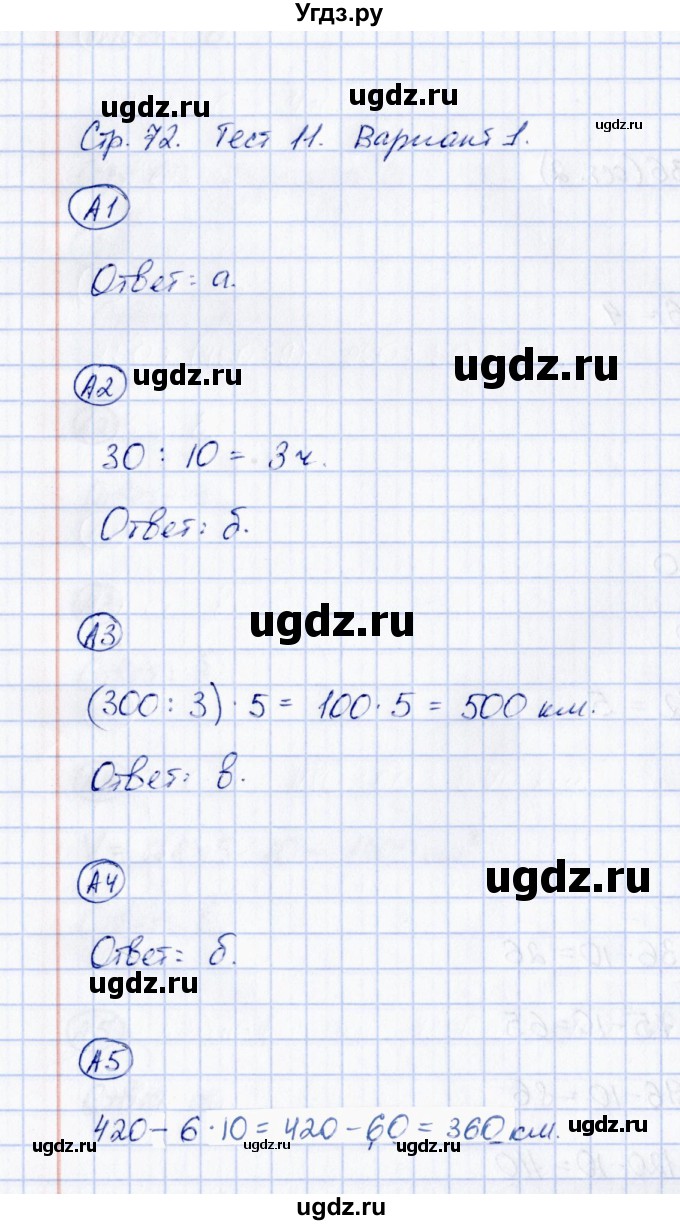 Угдз.ру
ugdz.ru
ugdz.ru
ugdz.ru
Стр. 72. Тест 11. Вариант 1.
А1
Ответ: а.
ugdz.ru
А2
ugdz.ru
30 : 10 = 3 ч.
Ответ: б.
ugdz.ru
А3
(300 : 3) · 5 = 100 · 5 = 500 км.
Ответ: в.
ugdz.ru
А4
Ответ: б.
ugdz.ru
А5
420 - 6 · 10 = 420 - 60 = 360 км.
ugdz.ru
ugdz.ru
ugdz.ru
ugdz.ru
ugdz.ru